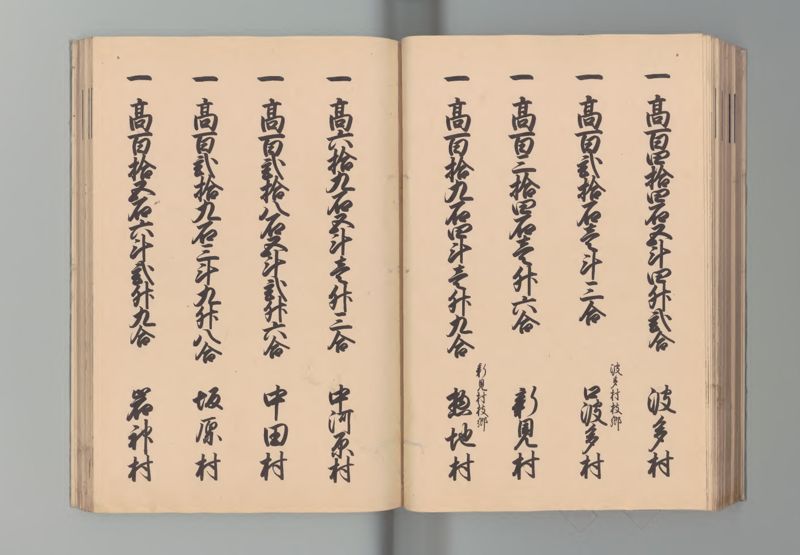 一 高百四拾四石五斗四升弐合 波多村
一 高百弐拾石壱斗三合 波多村枝郷 口波多村
一 高百三拾四石壱升六合 新見村
一 高百拾九石四斗壱升九合 新見村枝郷 惣地村
一 高六拾九石五斗壱升三合 中河原村
一 高百弐拾八石五斗弐升六合 中田村
一 高百弐拾九石三斗九升八合 坂原村
一 高百拾五石六斗弐升九合 岩神村